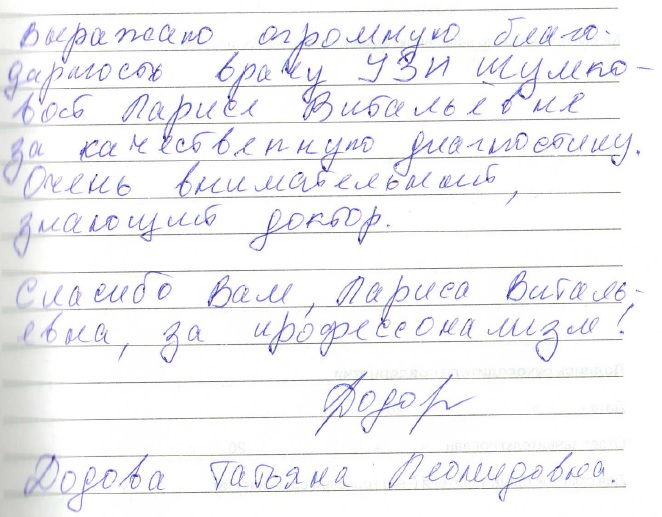 Выражаю огромную благо-
дарность врачу УЗИ Шумко-
вой Ларисе Витальевне
за качественную диагностику.
Очень внимательный,
знающий доктор.
Спасибо Вам, Лариса Виталь-
евна, за профессонализм!
Додова Татьяна Леонидовна.